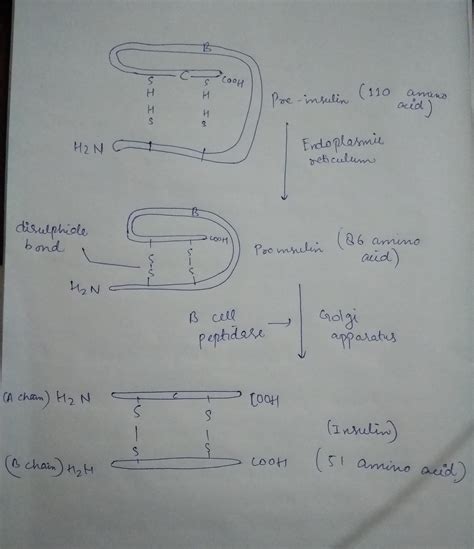 B
S C S COOH
H H
H H
S S
H2N
Pre-insulin (110 amino
acid)
Endoplasmic
reticulum
B
COOH
disulphide
bond
S S
S S
H2N
Proinsulin (86 amino
acid)
B cell
peptidase
Golgi
apparatus
(A chain) H2N C COOH
S S
S S
(B chain) H2N COOH
(Insulin)
(51 amino acid)